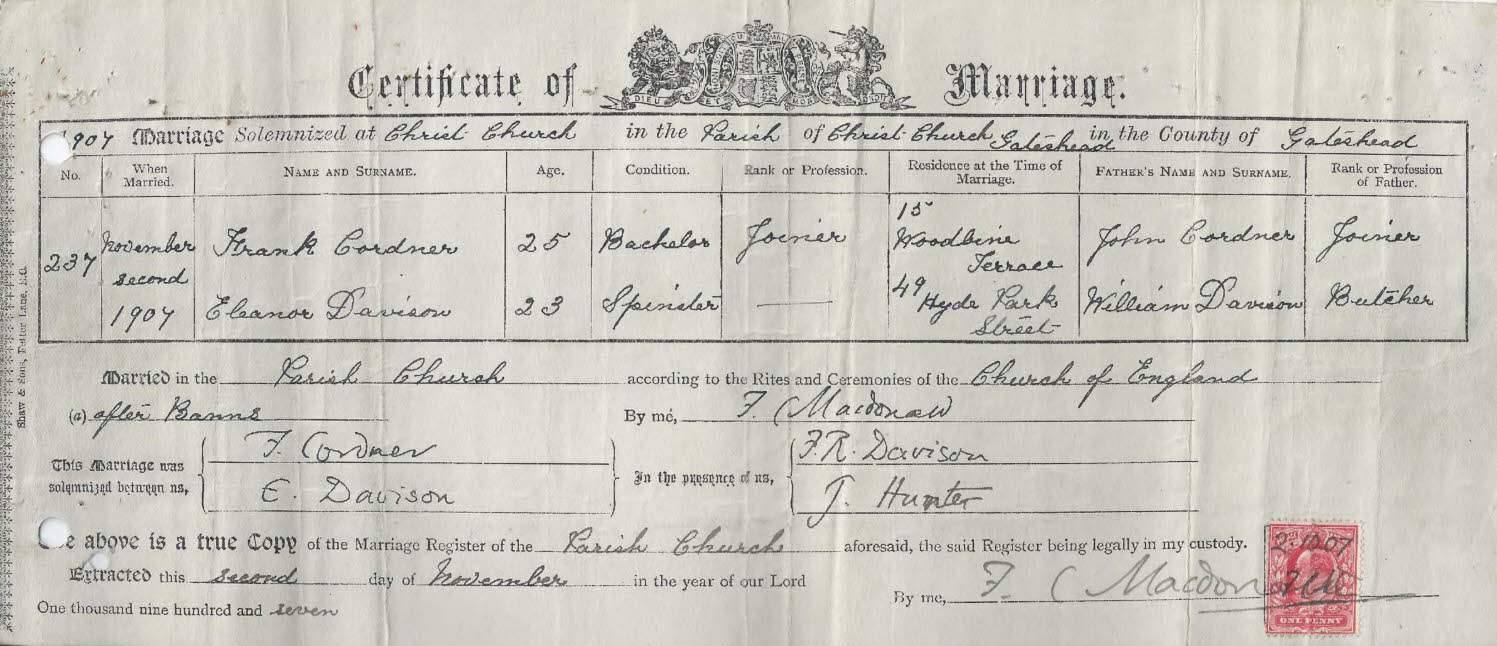 Certificate of Marriage.
DIEU ET MON DROIT
1907 Marriage Solemnized at Christ Church in the Parish of Christ Church Gateshead in the County of Gateshead
No. When Married. NAME AND SURNAME. Age. Condition. Rank or Profession. Residence at the Time of Marriage. FATHER'S NAME AND SURNAME. Rank or Profession of Father.
237 November second 1907 Frank Cordner 25 Bachelor Joiner 15 Woodbine Terrace John Cordner Joiner
Eleanor Davison 23 Spinster 49 Hyde Park Street William Davison Butcher
Married in the Parish Church according to the Rites and Ceremonies of the Church of England
(a) after Banns By me, F. C Macdonald
This Marriage was solemnized between us, F. Cordner E. Davison In the presence of us, F.R. Davison J. Hunter
The above is a true Copy of the Marriage Register of the Parish Church aforesaid, the said Register being legally in my custody.
Extracted this second day of November in the year of our Lord
One thousand nine hundred and seven By me, F. C Macdonald
ONE PENNY
Shaw & Sons, Fetter Lane, E.C.